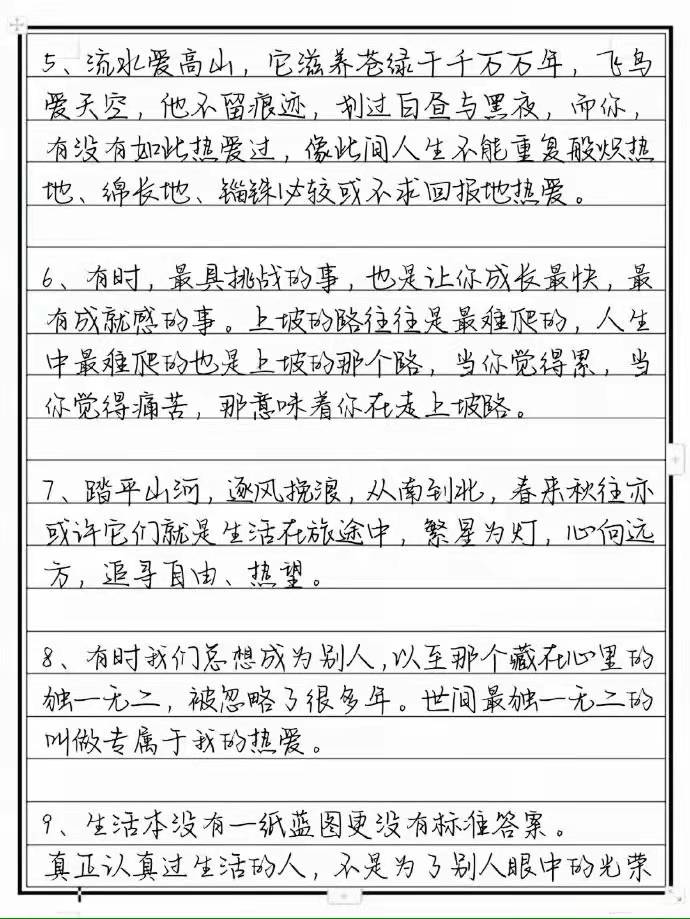 5、流水爱高山，它滋养苍绿于千万万年，飞鸟
爱天空，他不留痕迹，划过白昼与黑夜，而你，
有没有如此热爱过，像此间人生不能重复般炽热
地、绵长地、锱铢必较或不求回报地热爱。
6、有时，最具挑战的事，也是让你成长最快，最
有成就感的事。上坡的路往往是最难爬的，人生
中最难爬的也是上坡的那个路，当你觉得累，当
你觉得痛苦，那意味着你在走上坡路。
7、踏平山河，逐风挽浪，从南到北，春来秋往亦
或许它们就是生活在旅途中，繁星为灯，心向远
方，追寻自由、热望。
8、有时我们总想成为别人，以至那个藏在心里的
独一无二，被忽略了很多年。世间最独一无二的
叫做专属于我的热爱。
9、生活本没有一纸蓝图更没有标准答案。
真正认真过生活的人，不是为了别人眼中的光荣